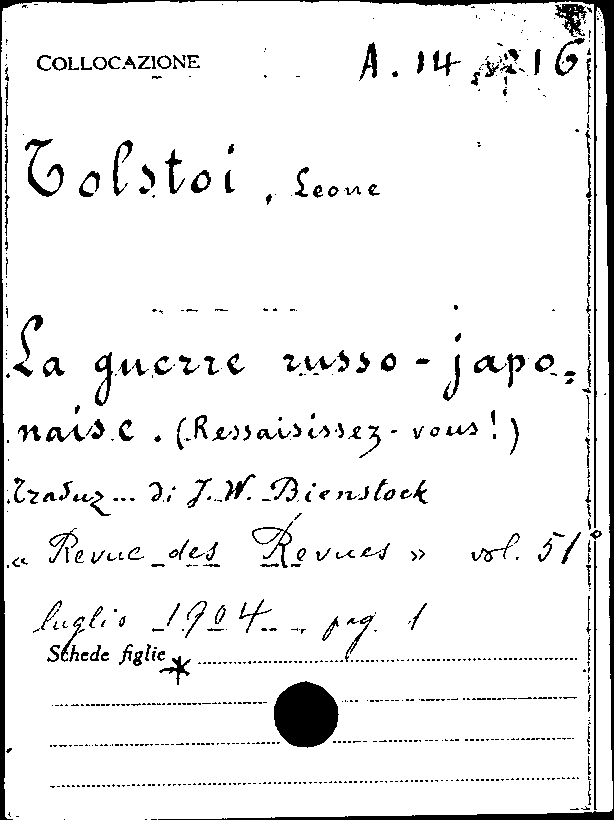 COLLOCAZIONE A. 14 216
Tolstoi, Leone
La guerre russo-japo=
naise. (Ressaisissez-vous!)
traduz... di J. W. Bienstock
« Revue des Revues » vol. 51°
luglio 1904 - pag. 1
Schede figlie *